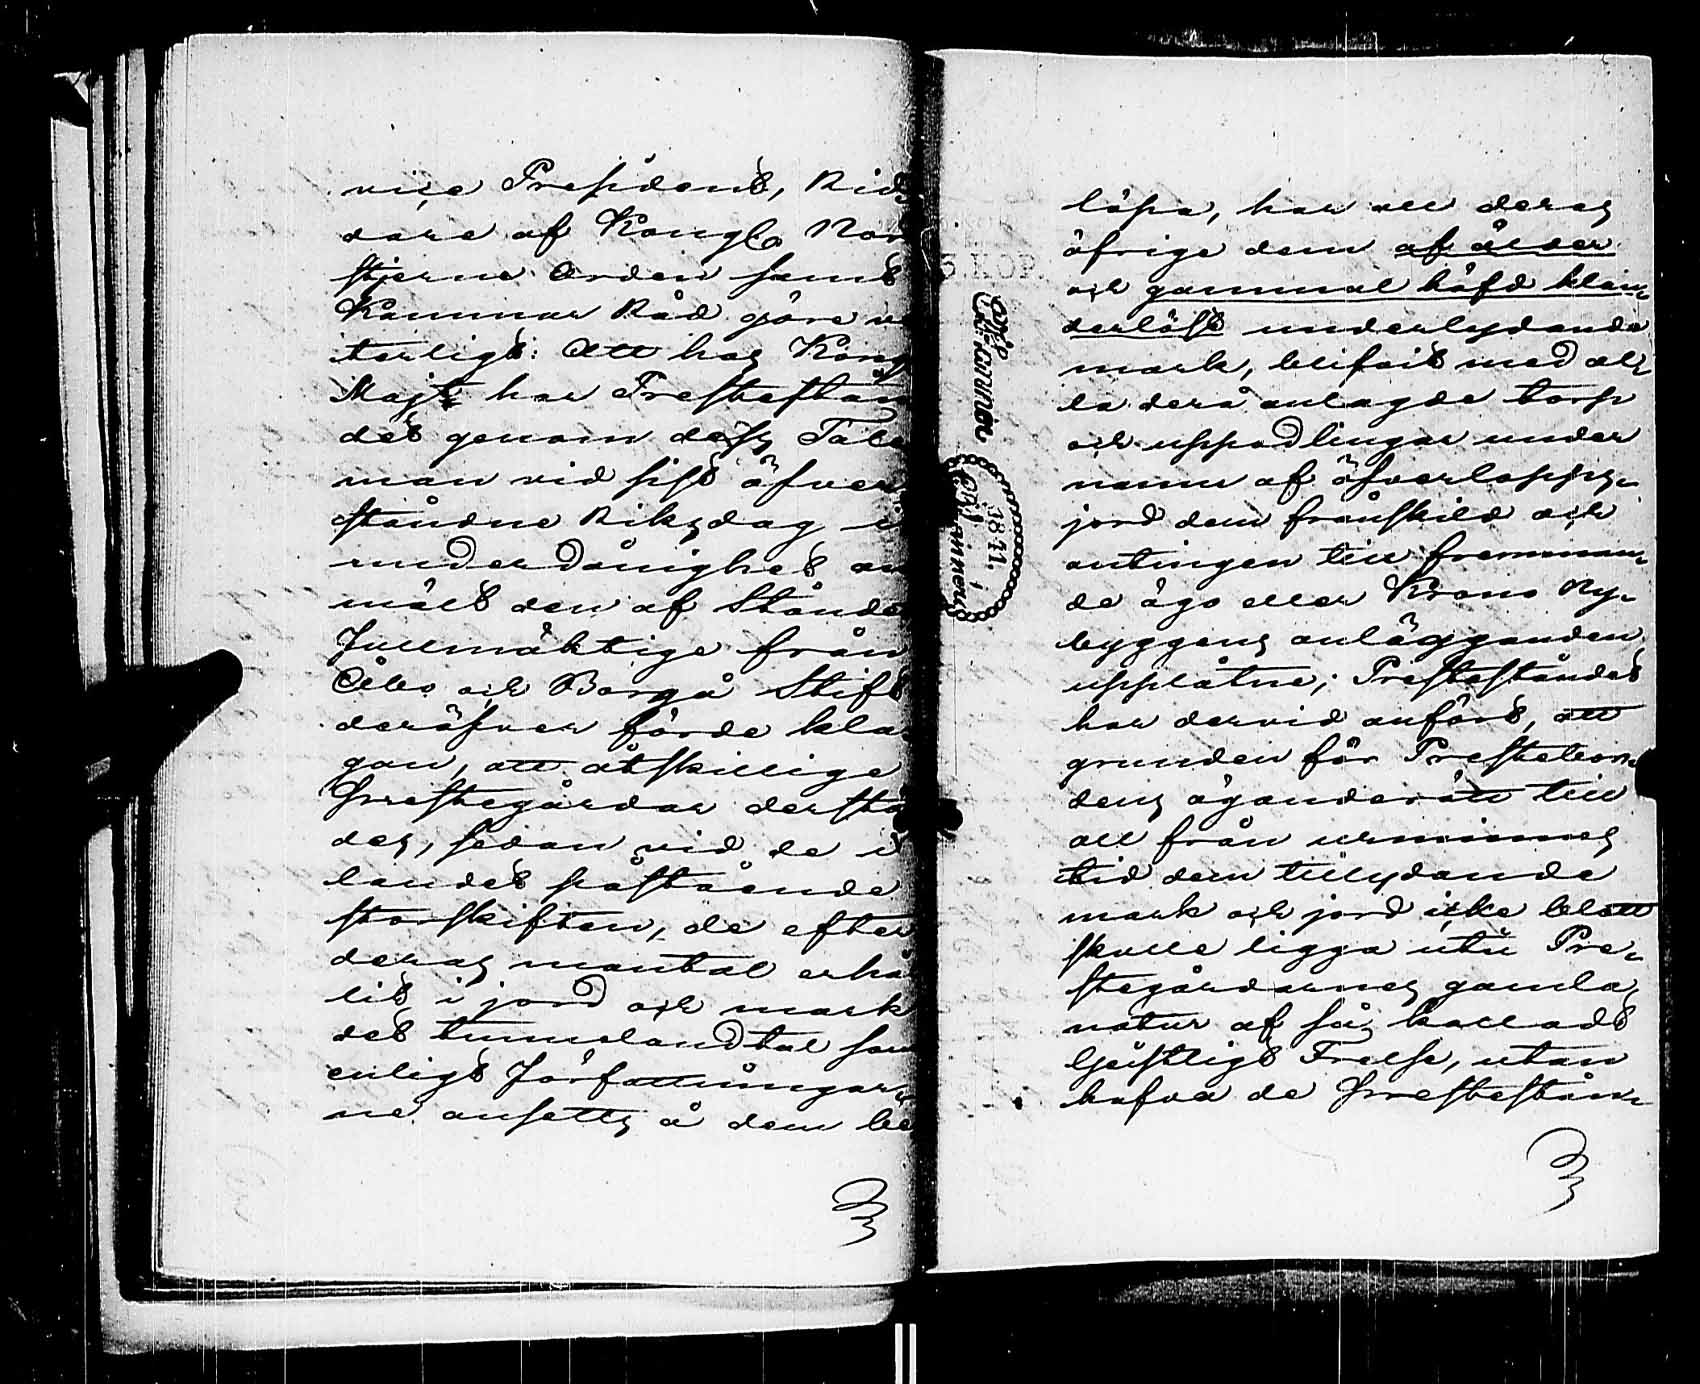 vice President, Rid
dare af Kongl. Nord
stjerne Orden samt
Kammar Råd göre ve
terligt: Att hos Kongl
Majt har Prestestån
det genom dess Tale
man vid sist öfver
ståndne Riksdag i
underdånighet an
mält den af Stånde
Fullmäktige från
Åbo och Borgå Stift
deröfver förde kla
gan, att åtskillige
Prestegårdar dersta
des, sedan vid de i
landet påstående
storskiften, de efter
deras mantal erhål
lit i jord och mark
det tunnelandtal som
enligt Författningar
ne ansetts å dem be
löpa, har all deras
öfrige dem af ålder
och gammal häfd klan
derlöst underlydande
mark, blifvit med al
la derå anlagde torp
och uppodlingar under
namn af öfverlopps
jord dem frånskild och
antingen till fremman
de ägo eller Krono Ny
byggens anläggande
upplåtne; Presteståndet
har dervid anfört, att
grunden för Prestebor
dens äganderätt till
all från urminnes
tid dem tillydande
mark och jord icke blott
skulle ligga uti Pre
stegårdarnes gamla
natur af så kalladt
Ljustligt Frelse, utan
hafva de Prestestån
3 KOP.
1811.